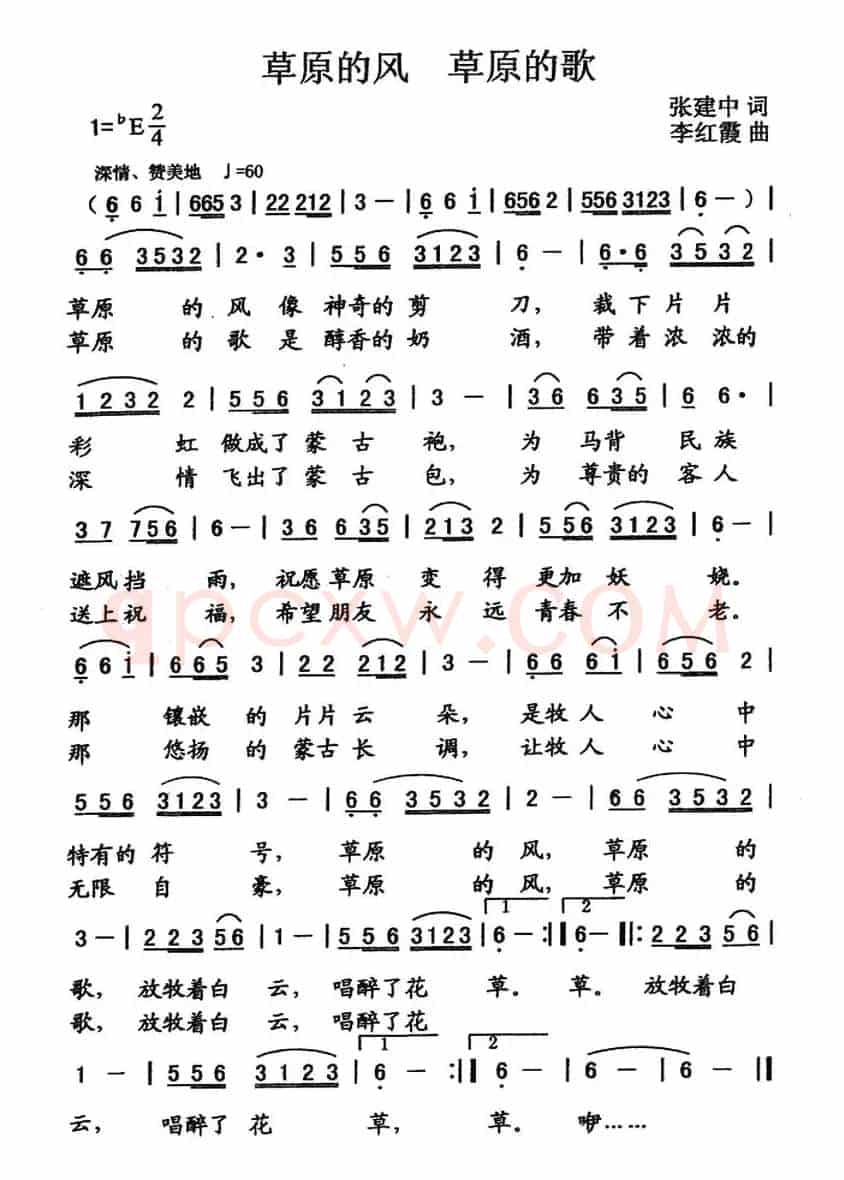 草原的风 草原的歌
张建中 词
1=ᵇE 2/4
李红霞 曲
深情、赞美地 ♩=60
( 6 6 i | 665 3 | 22 212 | 3 - | 6 6 i | 656 2 | 556 3123 | 6 - ) |
6 6 3532 | 2 · 3 | 5 5 6 3 1 2 3 | 6 - | 6 · 6 3 5 3 2 |
草原 的 风 像 神奇的 剪 刀, 裁 下 片 片
草原 的 歌 是 醇香的 奶 酒, 带 着 浓 浓的
1 2 3 2 2 | 5 5 6 3 1 2 3 | 3 - | 3 6 6 3 5 | 6 6 · |
彩 虹 做成了 蒙 古 袍, 为 马背 民 族
深 情 飞出了 蒙 古 包, 为 尊贵的 客 人
3 7 7 5 6 | 6 - | 3 6 6 3 5 | 2 1 3 2 | 5 5 6 3 1 2 3 | 6 - |
遮风挡 雨, 祝愿草原 变 得 更加 妖 娆。
送上祝 福, 希望朋友 永 远 青春 不 老。
qpcxw.COM
6 6 i | 6 6 5 3 | 2 2 2 1 2 | 3 - | 6 6 6 i | 6 5 6 2 |
那 镶嵌 的 片片 云 朵, 是牧 人 心 中
那 悠扬 的 蒙古 长 调, 让牧 人 心 中
5 5 6 3 1 2 3 | 3 - | 6 6 3 5 3 2 | 2 - | 6 6 3 5 3 2 |
特有的 符 号, 草原 的 风, 草原 的
无限 自 豪, 草原 的 风, 草原 的
1 2
3 - | 2 2 3 5 6 | 1 - | 5 5 6 3 1 2 3 | 6 - :‖ 6 - ‖: 2 2 3 5 6 |
歌, 放牧着白 云, 唱醉了花 草。 草。 放牧着白
歌, 放牧着白 云, 唱醉了花
1 2
1 - | 5 5 6 3 1 2 3 | 6 - :‖ 6 - | 6 - | 6 - ‖
云, 唱醉了 花 草, 草。 咿……